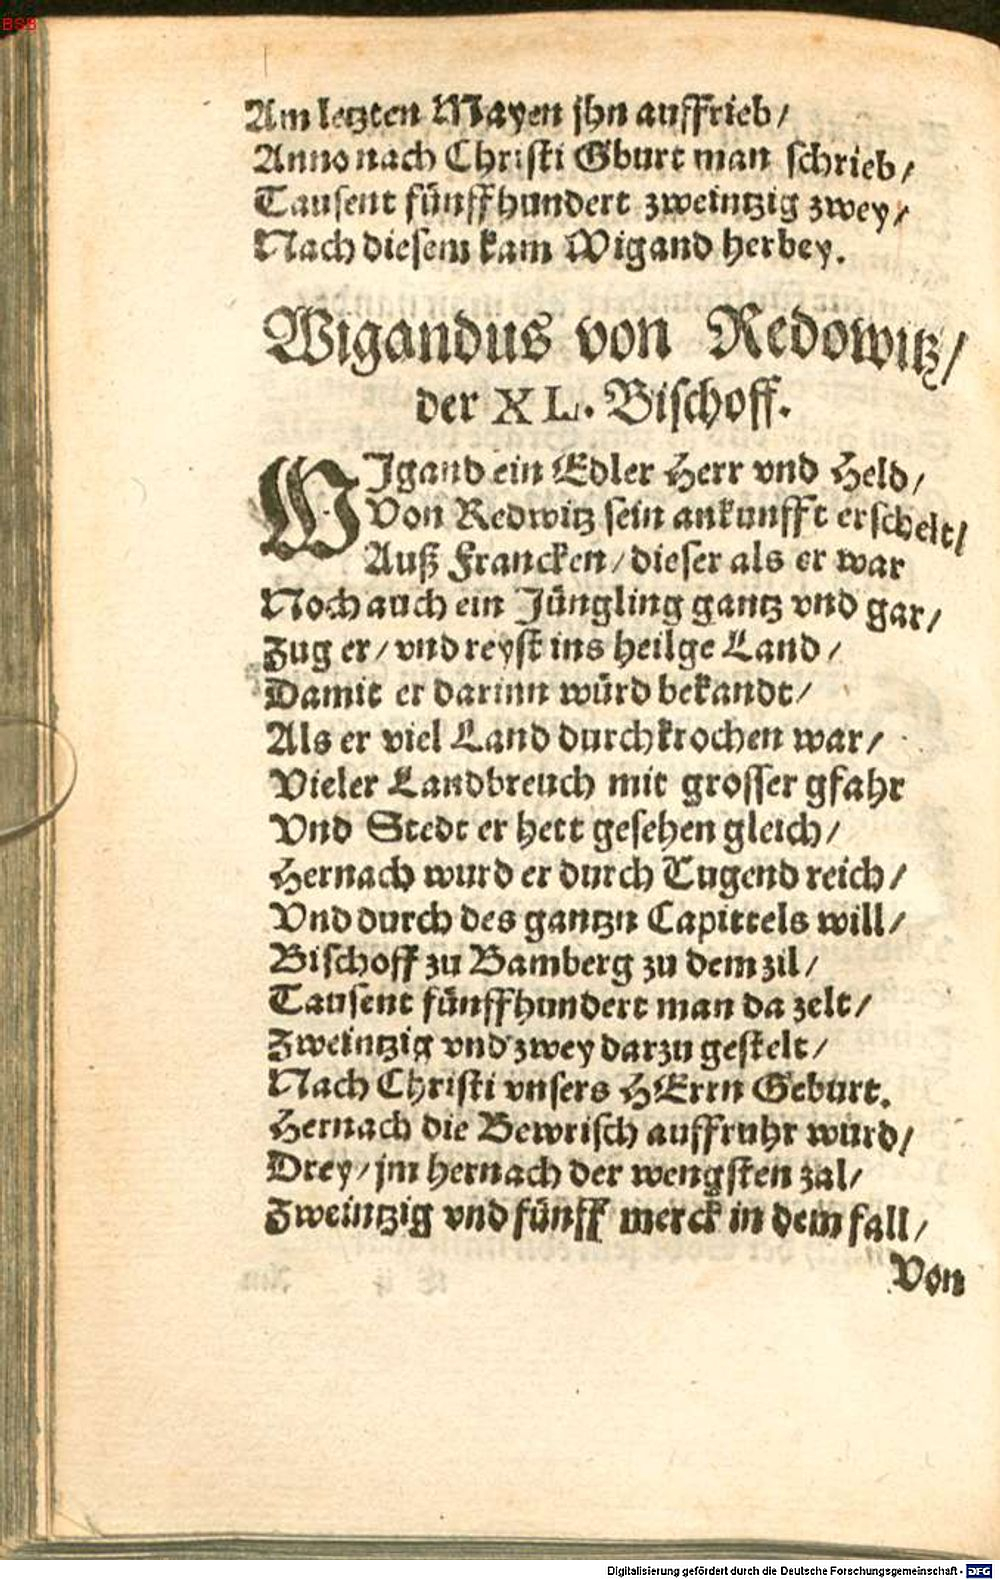 BSB
Am letzten Mayen jhn auffrieb/
Anno nach Christi Gburt man schrieb/
Tausent fünffhundert zweintzig zwey/
Nach diesem kam Wigand herbey.
Wigandus von Redowitz/
der XL. Bischoff.
WIgand ein Edler Herr vnd Held/
Von Redwitz sein ankunfft erschelt/
Auß Francken/ dieser als er war
Noch auch ein Jüngling gantz vnd gar/
Zug er/ vnd reyst ins heilge Land/
Damit er darinn würd bekandt/
Als er viel Land durchkrochen war/
Vieler Landbreuch mit grosser gfahr
Vnd Stedt er hett gesehen gleich/
Hernach wurd er durch Tugend reich/
Vnd durch des gantzn Capittels will/
Bischoff zu Bamberg zu dem zil/
Tausent fünffhundert man da zelt/
Zweintzig vnd zwey darzu gestelt/
Nach Christi vnsers HErrn Geburt.
Hernach die Bewrisch auffruhr wurd/
Drey/ jm hernach der wengsten zal/
Zweintzig vnd fünff merck in dem fall/
Von
Digitalisierung gefördert durch die Deutsche Forschungsgemeinschaft - DFG